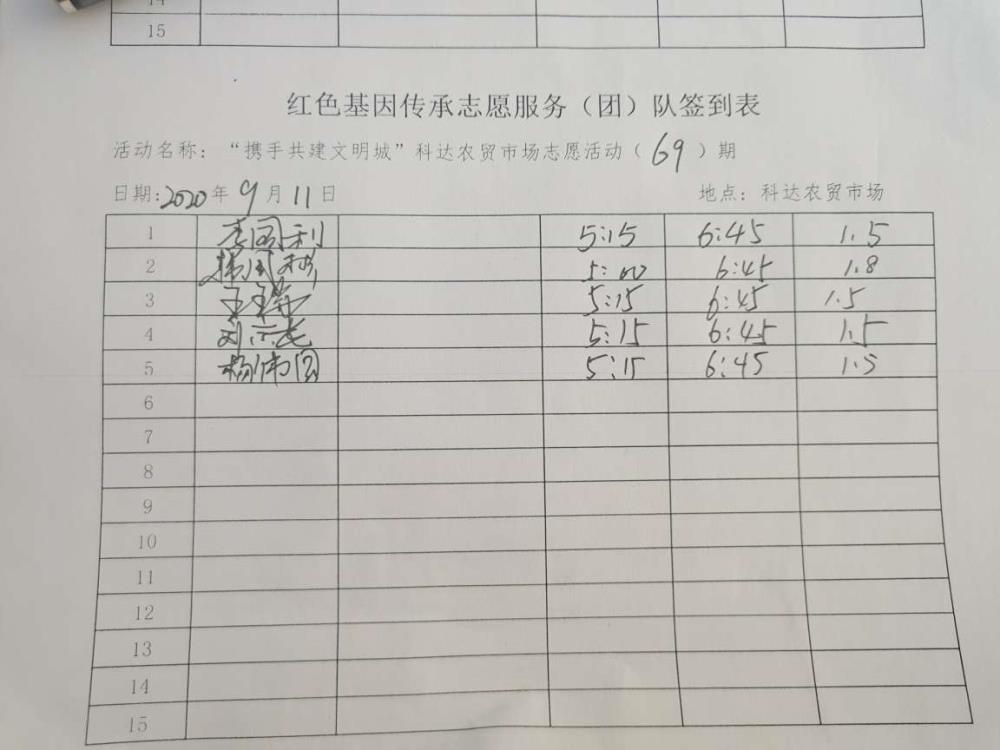 15
红色基因传承志愿服务（团）队签到表
活动名称：“携手共建文明城”科达农贸市场志愿活动（69）期
日期：2020年9月11日 地点：科达农贸市场
1 李国利 5:15 6:45 1.5
2 5:00 6:45 1.8
3 5:15 6:45 1.5
4 5:15 6:45 1.5
5 杨伟国 5:15 6:45 1.5
6
7
8
9
10
11
12
13
14
15